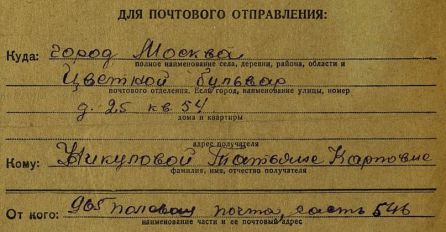 ДЛЯ ПОЧТОВОГО ОТПРАВЛЕНИЯ:
Куда: город Москва
полное наименование села, деревни, района, области и
Цветной бульвар
почтового отделения. Если город, наименование улицы, номер
д. 25 кв 54
дома и квартиры
адрес получателя
Кому: Никуловой Татьяне Карповне
фамилия, имя, отчество получателя
От кого: 965 полевая почта, часть 546
наименование части и ее почтовый адрес